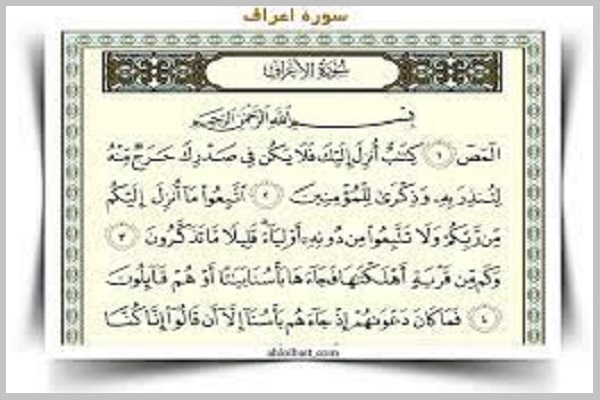 سورة اعراف
سُورَةُ الْأَعْرَافِ
بِسْمِ اللَّهِ الرَّحْمَٰنِ الرَّحِيمِ
الٓمٓصٓ ١ كِتَٰبٌ أُنزِلَ إِلَيْكَ فَلَا يَكُن فِى صَدْرِكَ حَرَجٌ مِّنْهُ
لِتُنذِرَ بِهِۦ وَذِكْرَىٰ لِلْمُؤْمِنِينَ ٢ ٱتَّبِعُوا۟ مَآ أُنزِلَ إِلَيْكُم
مِّن رَّبِّكُمْ وَلَا تَتَّبِعُوا۟ مِن دُونِهِۦٓ أَوْلِيَآءَ ۗ قَلِيلًا مَّا تَذَكَّرُونَ ٣
وَكَم مِّن قَرْيَةٍ أَهْلَكْنَٰهَا فَجَآءَهَا بَأْسُنَا بَيَٰتًا أَوْ هُمْ قَآئِلُونَ
٤ فَمَا كَانَ دَعْوَىٰهُمْ إِذْ جَآءَهُم بَأْسُنَآ إِلَّآ أَن قَالُوٓا۟ إِنَّا كُنَّا
ahlolbait.com